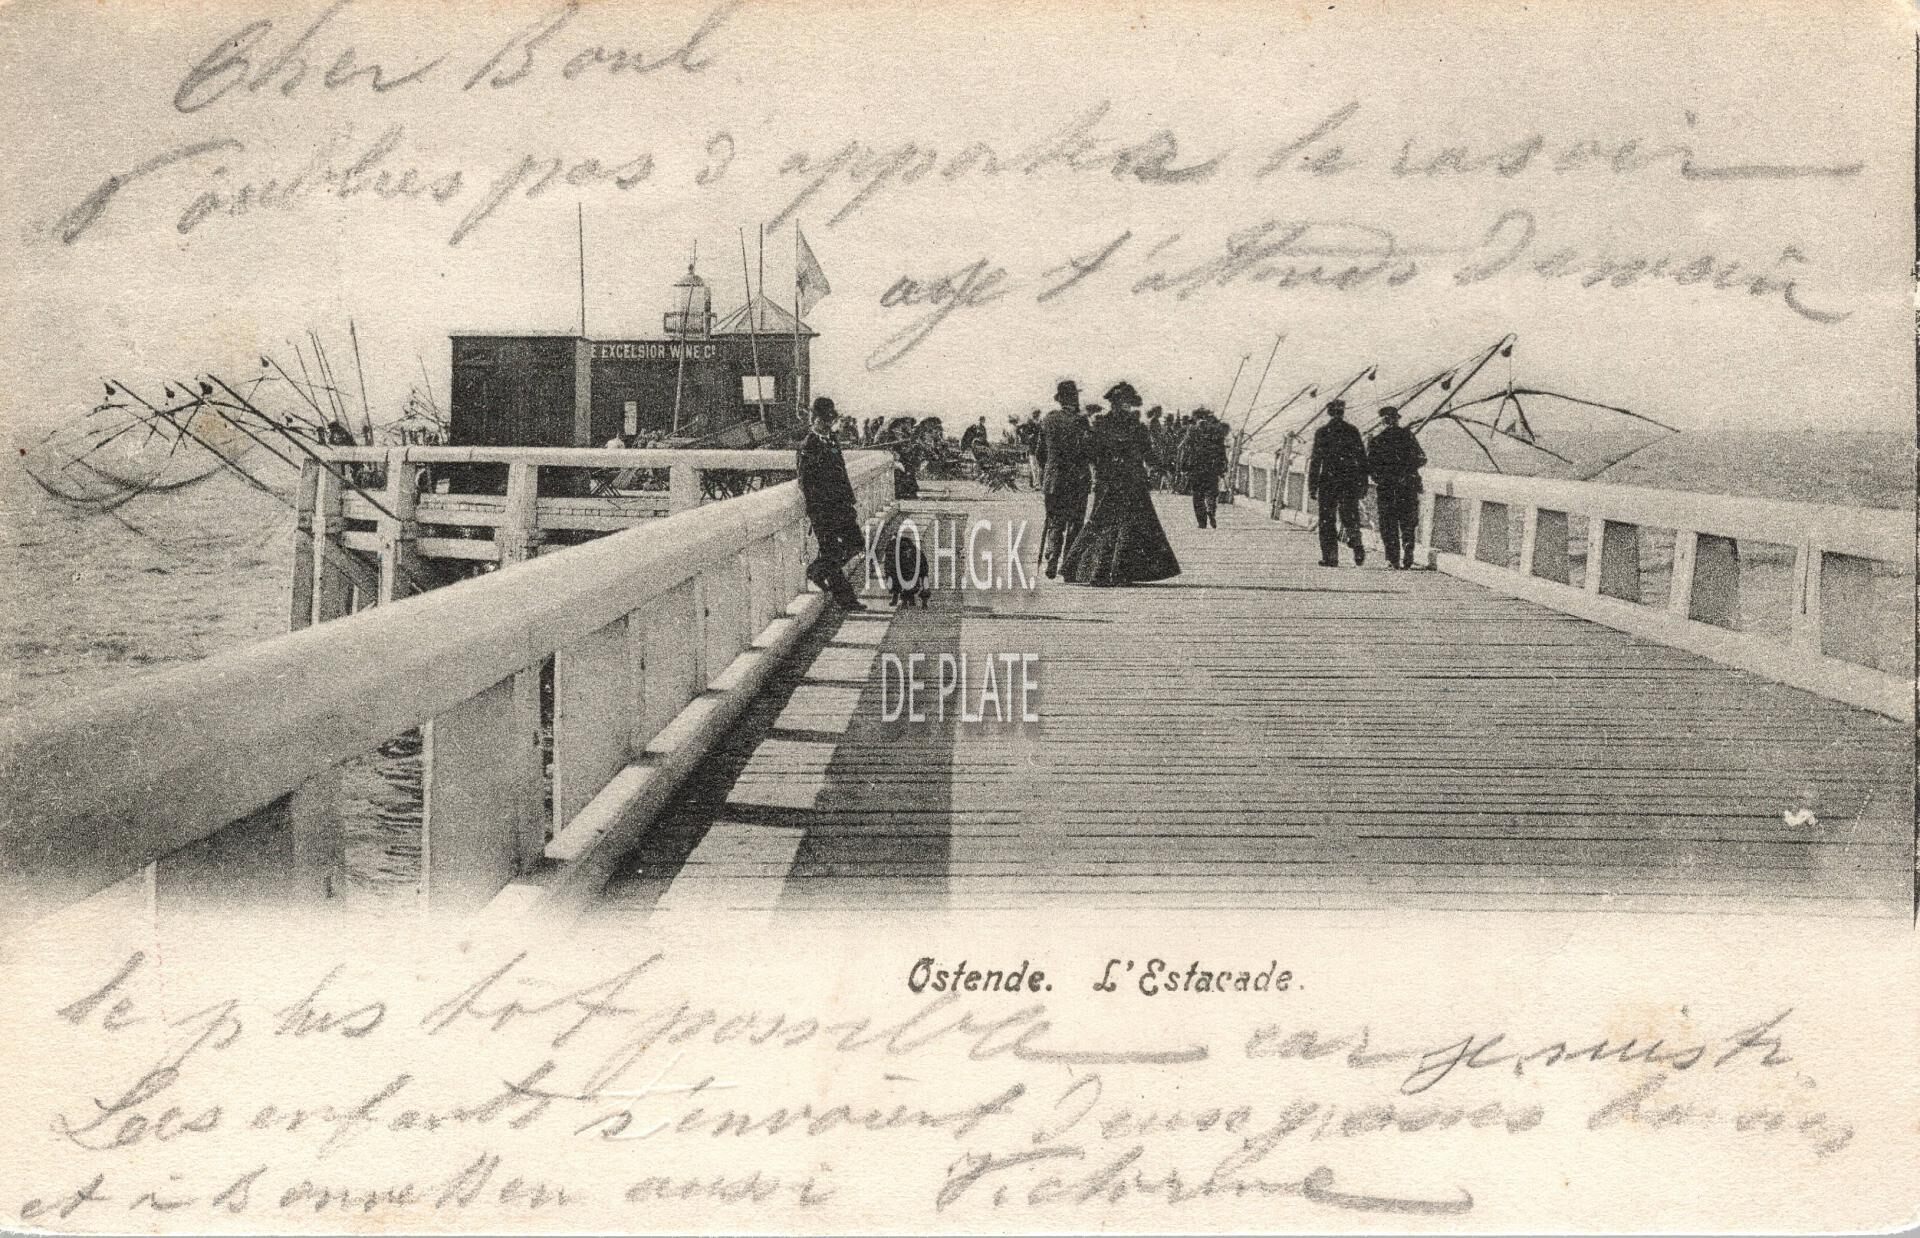 Cher Boul
N'oublies pas d'apporter le rasoir
age t'attends Demain
E EXCELSIOR WINE Cº
K.O.H.G.K.
DE PLATE
Ostende. L'Estacade.
le plus tôt possible car je suis
Les enfants s'envoient deux grosses
et à aussi Victorine